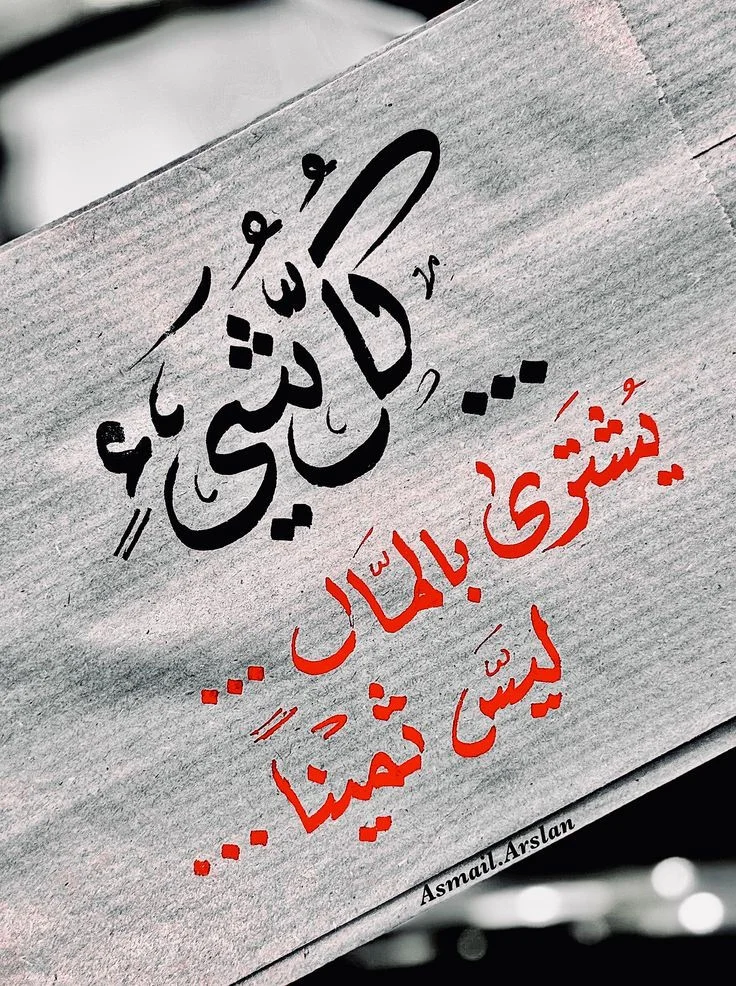 كُلُّ شَيْءٍ ...
يُشترَى بالمال ...
ليسَ ثميْناً ...
Asmail.Arslan